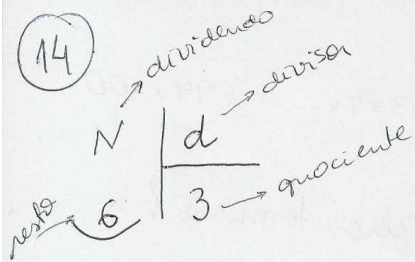 14
dividendo
N d divisor
resto 6 3 quociente